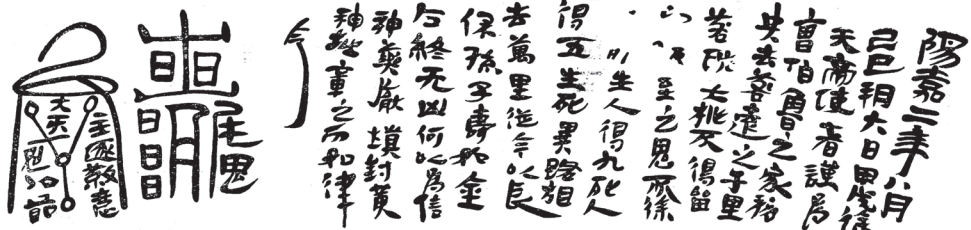 陽嘉二年八月
己巳朔六日甲戌徐
天帝使者謹爲
曹伯魯之家移
央去咎遠之千里
咎殃大桃不得留
至之鬼所徐
生人得九死人
得五生死異路相
去萬里從今以長
保孫子壽如金
石終无凶何以爲信
神藥厭填封黃
神越章之印如律
令
大天一
主逐敖惡
鬼以節